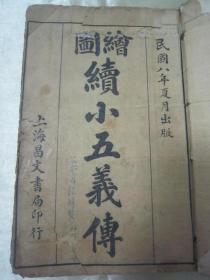 民國八年夏月出版
繪圖
續小五義傳
上海昌文書局印行